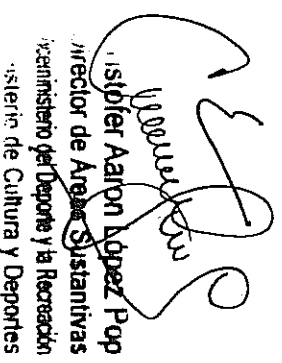 istofer Aaron López Pop
irector de Áreas Sustantivas
iceministerio del Deporte y la Recreación
isterio de Cultura y Deportes